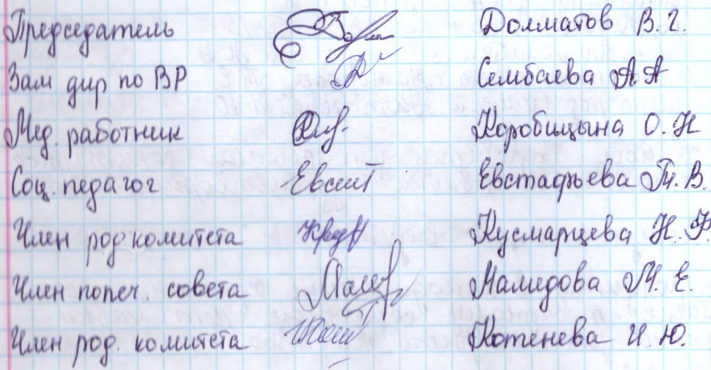 Председатель Долматов В. Г.
Зам дир по ВР Сембаева А А
Мед. работник Коробицына О. Н
Соц. педагог Евстафьева Т. В.
Член род комитета Кусмарцева Н. Ф.
Член попеч. совета Мамедова М. Е.
Член род. комитета Котенева И. Ю.